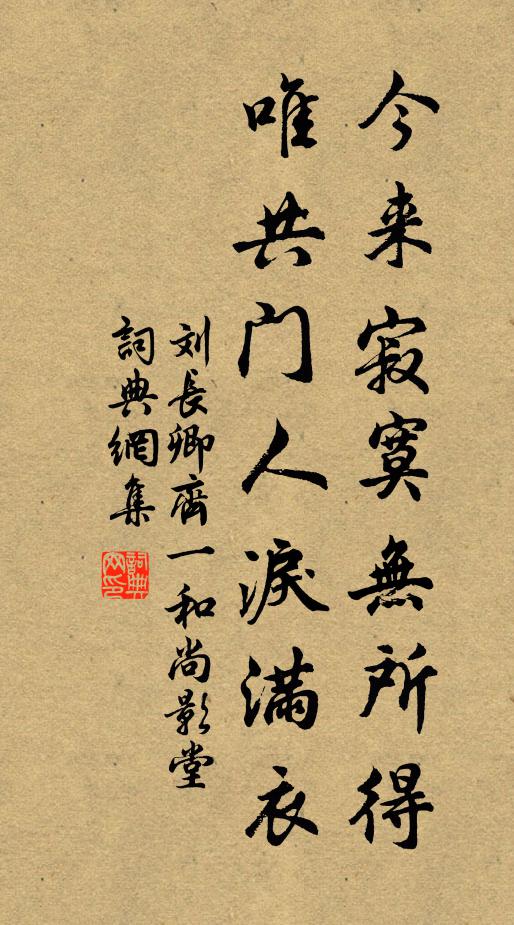 今来寂寞無所得
唯共门人淚滿衣
刘長卿齊一和尚影堂
詞典網集
詞典网印